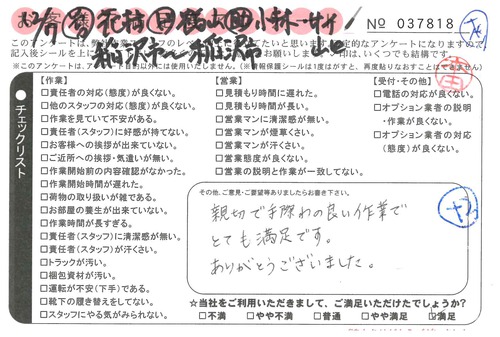 No 037818
このアンケートは、
【作業】
□責任者の対応(態度)が良くない。
□他のスタッフの対応(態度)が良くない。
□作業を見ていて不安がある。
□責任者(スタッフ)に好感が持てない。
□お客様への挨拶が出来ていない。
□ご近所への挨拶・気遣いが無い。
□作業開始前の内容確認がなかった。
□作業開始時間が遅れた。
□荷物の取り扱いが雑である。
□お部屋の養生が出来ていない。
□作業時間が長すぎる。
□責任者(スタッフ)に清潔感が無い。
□責任者(スタッフ)が汗くさい。
□トラックが汚い。
□梱包資材が汚い。
□運転が不安(下手)である。
□靴下の履き替えをしてない。
□スタッフにやる気がみられない。
チェックリスト
【営業】
□見積もり時間に遅れた。
□見積もり時間が長い。
□営業マンに清潔感が無い。
□営業マンが煙草くさい。
□営業マンが汗くさい。
□営業態度が良くない。
□営業の説明と作業が一致してない。
【受付・その他】
□電話の対応が良くない。
□オプション業者の説明
・作業が良くない。
□オプション業者の対応
(態度)が良くない。
その他、ご意見・ご要望等ありましたらお書き下さい。
親切で手際れの良い作業で
とても満足です。
ありがとうございました。
☆当社をご利用いただきまして、ご満足いただけたでしょうか?
□不満 □やや不満 □普通 □やや満足 □満足